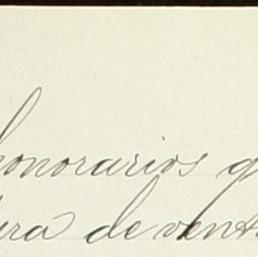 honorarios q
ura de vent